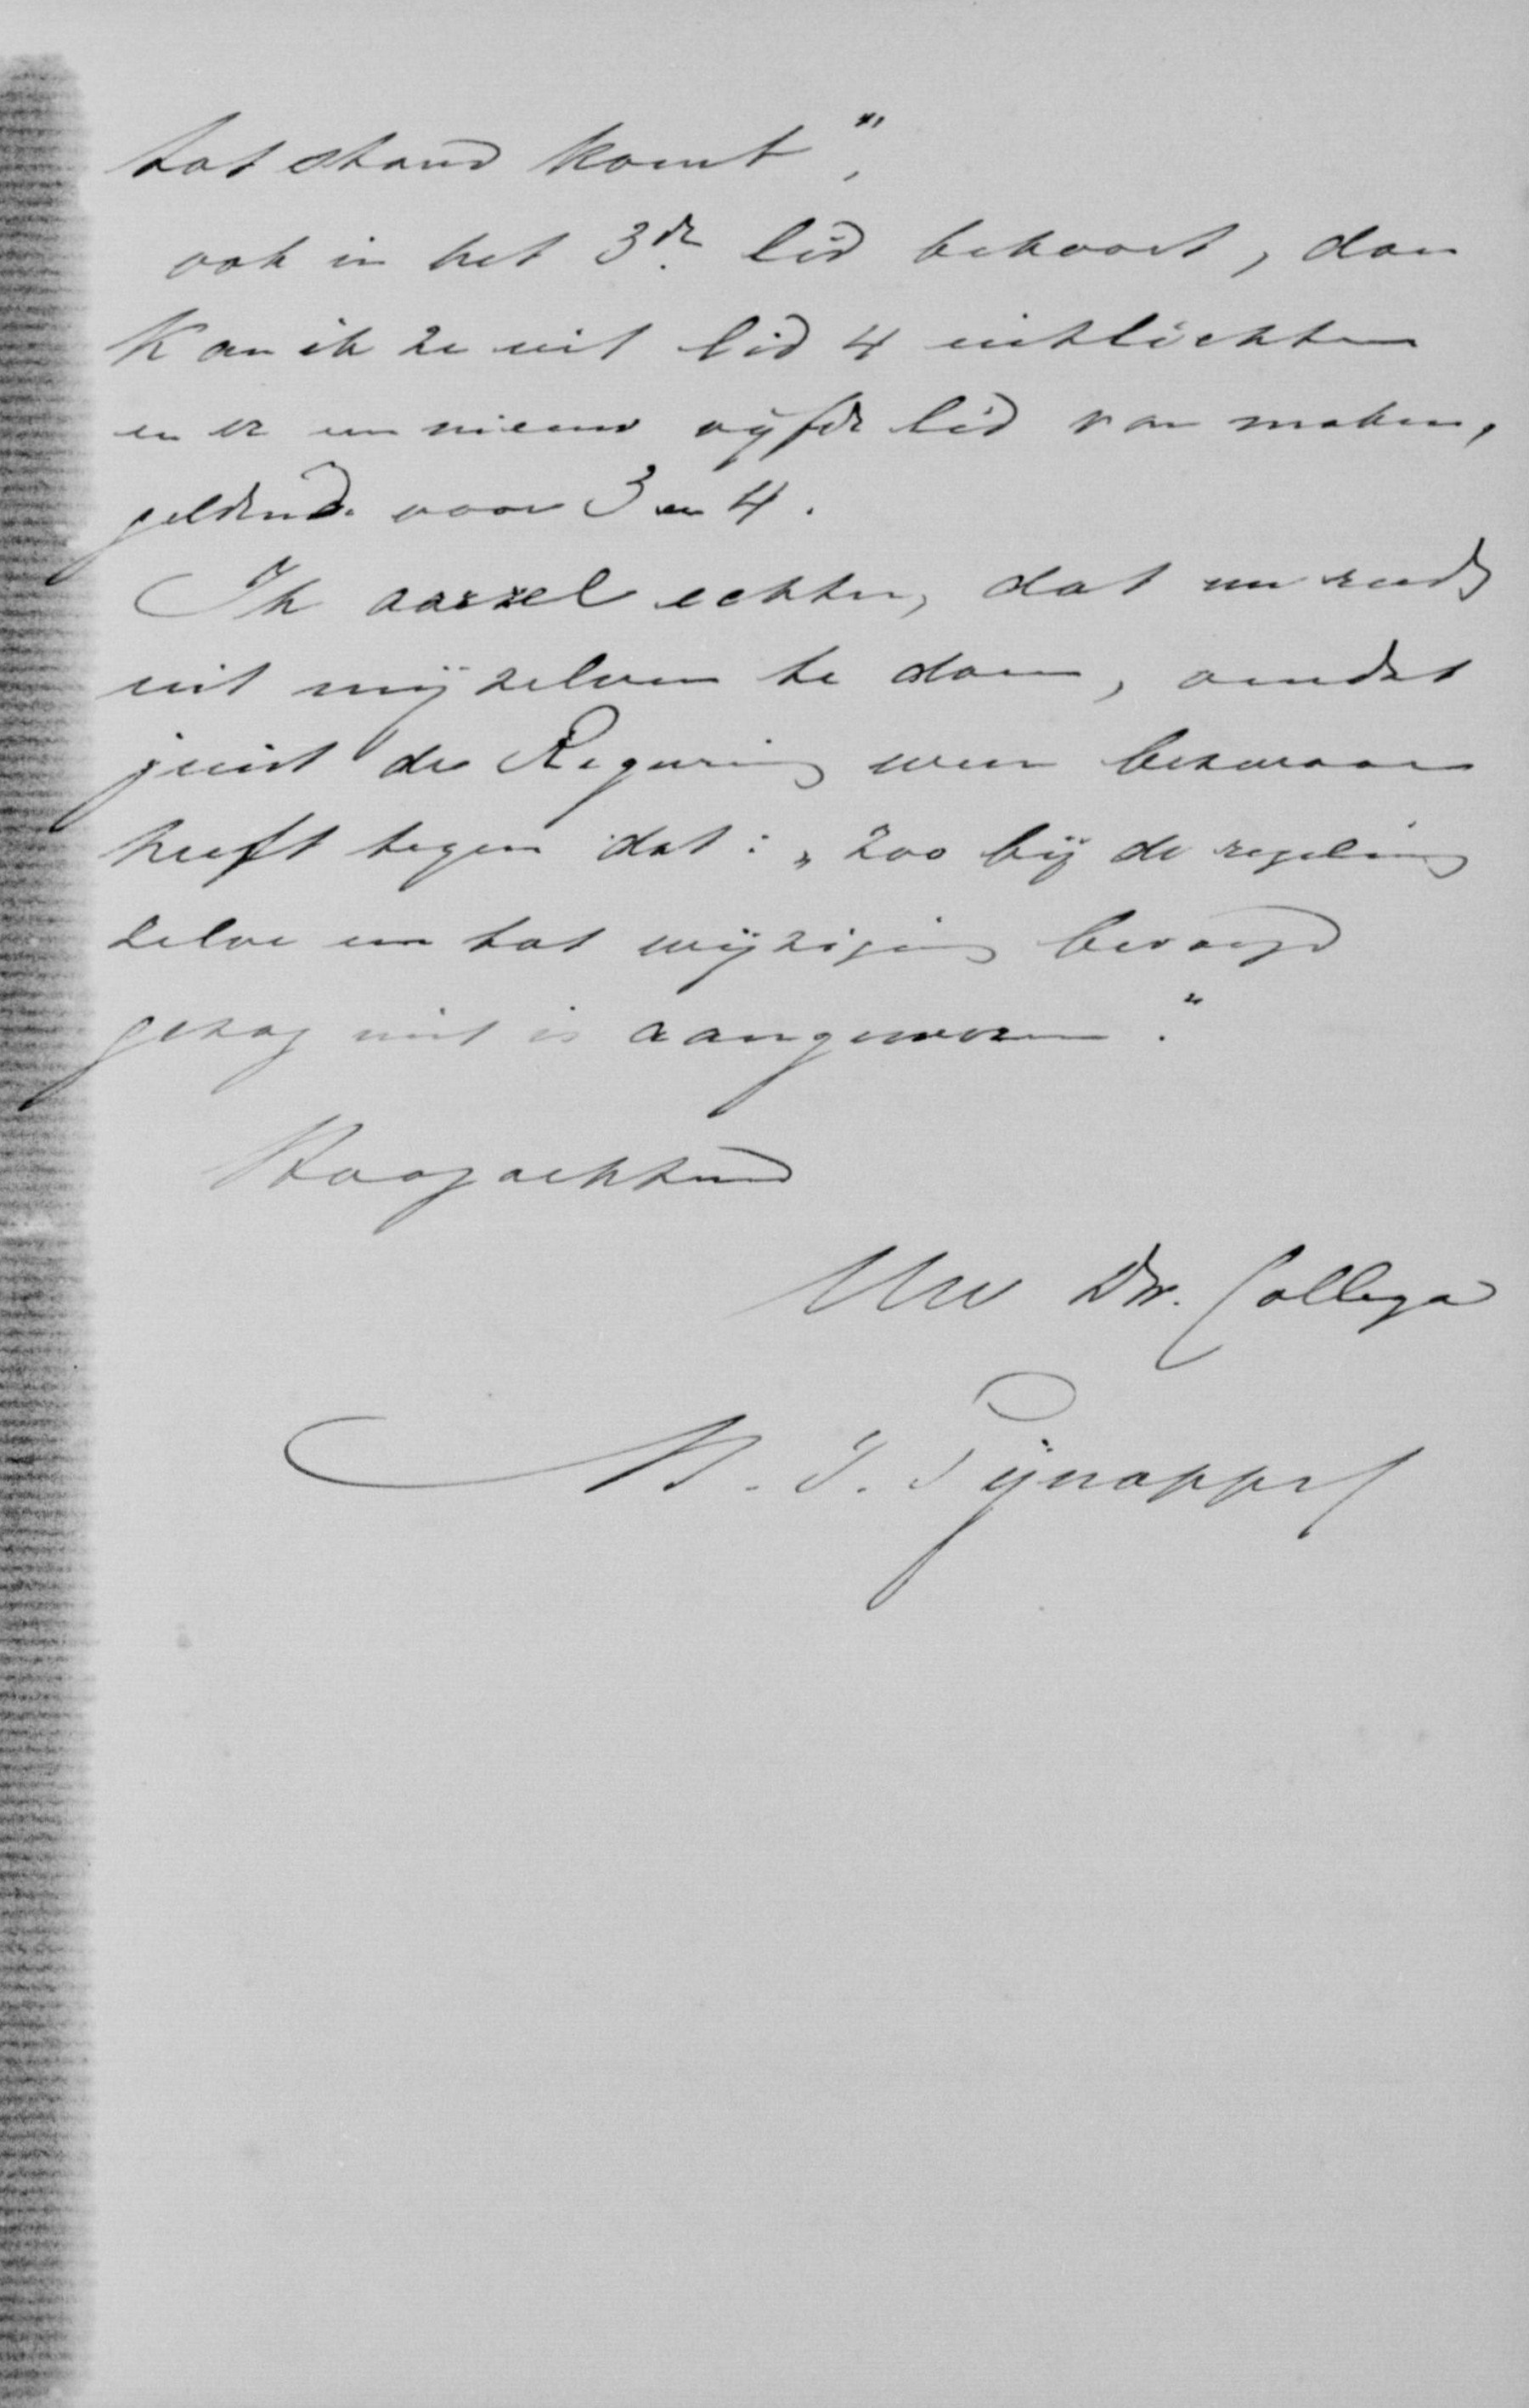 tot stand komt",
ook in het 3de lid behoort, dan
kan ik ze uit lid 4 uitlichten
en er een nieuw vijfde lid van maken,
geldende voor 3 en 4.
Ik aarzel echter, dat nu reeds
uit mijzelven te doen, omdat
juist de Regeering weer bezwaar
heeft tegen dat: „zoo bij de regeling
zelve een tot wijziging bevoegd
gezag niet is aangewezen."
Hoogachtend
Uw Dw. Collega
M. J. Pijnappel